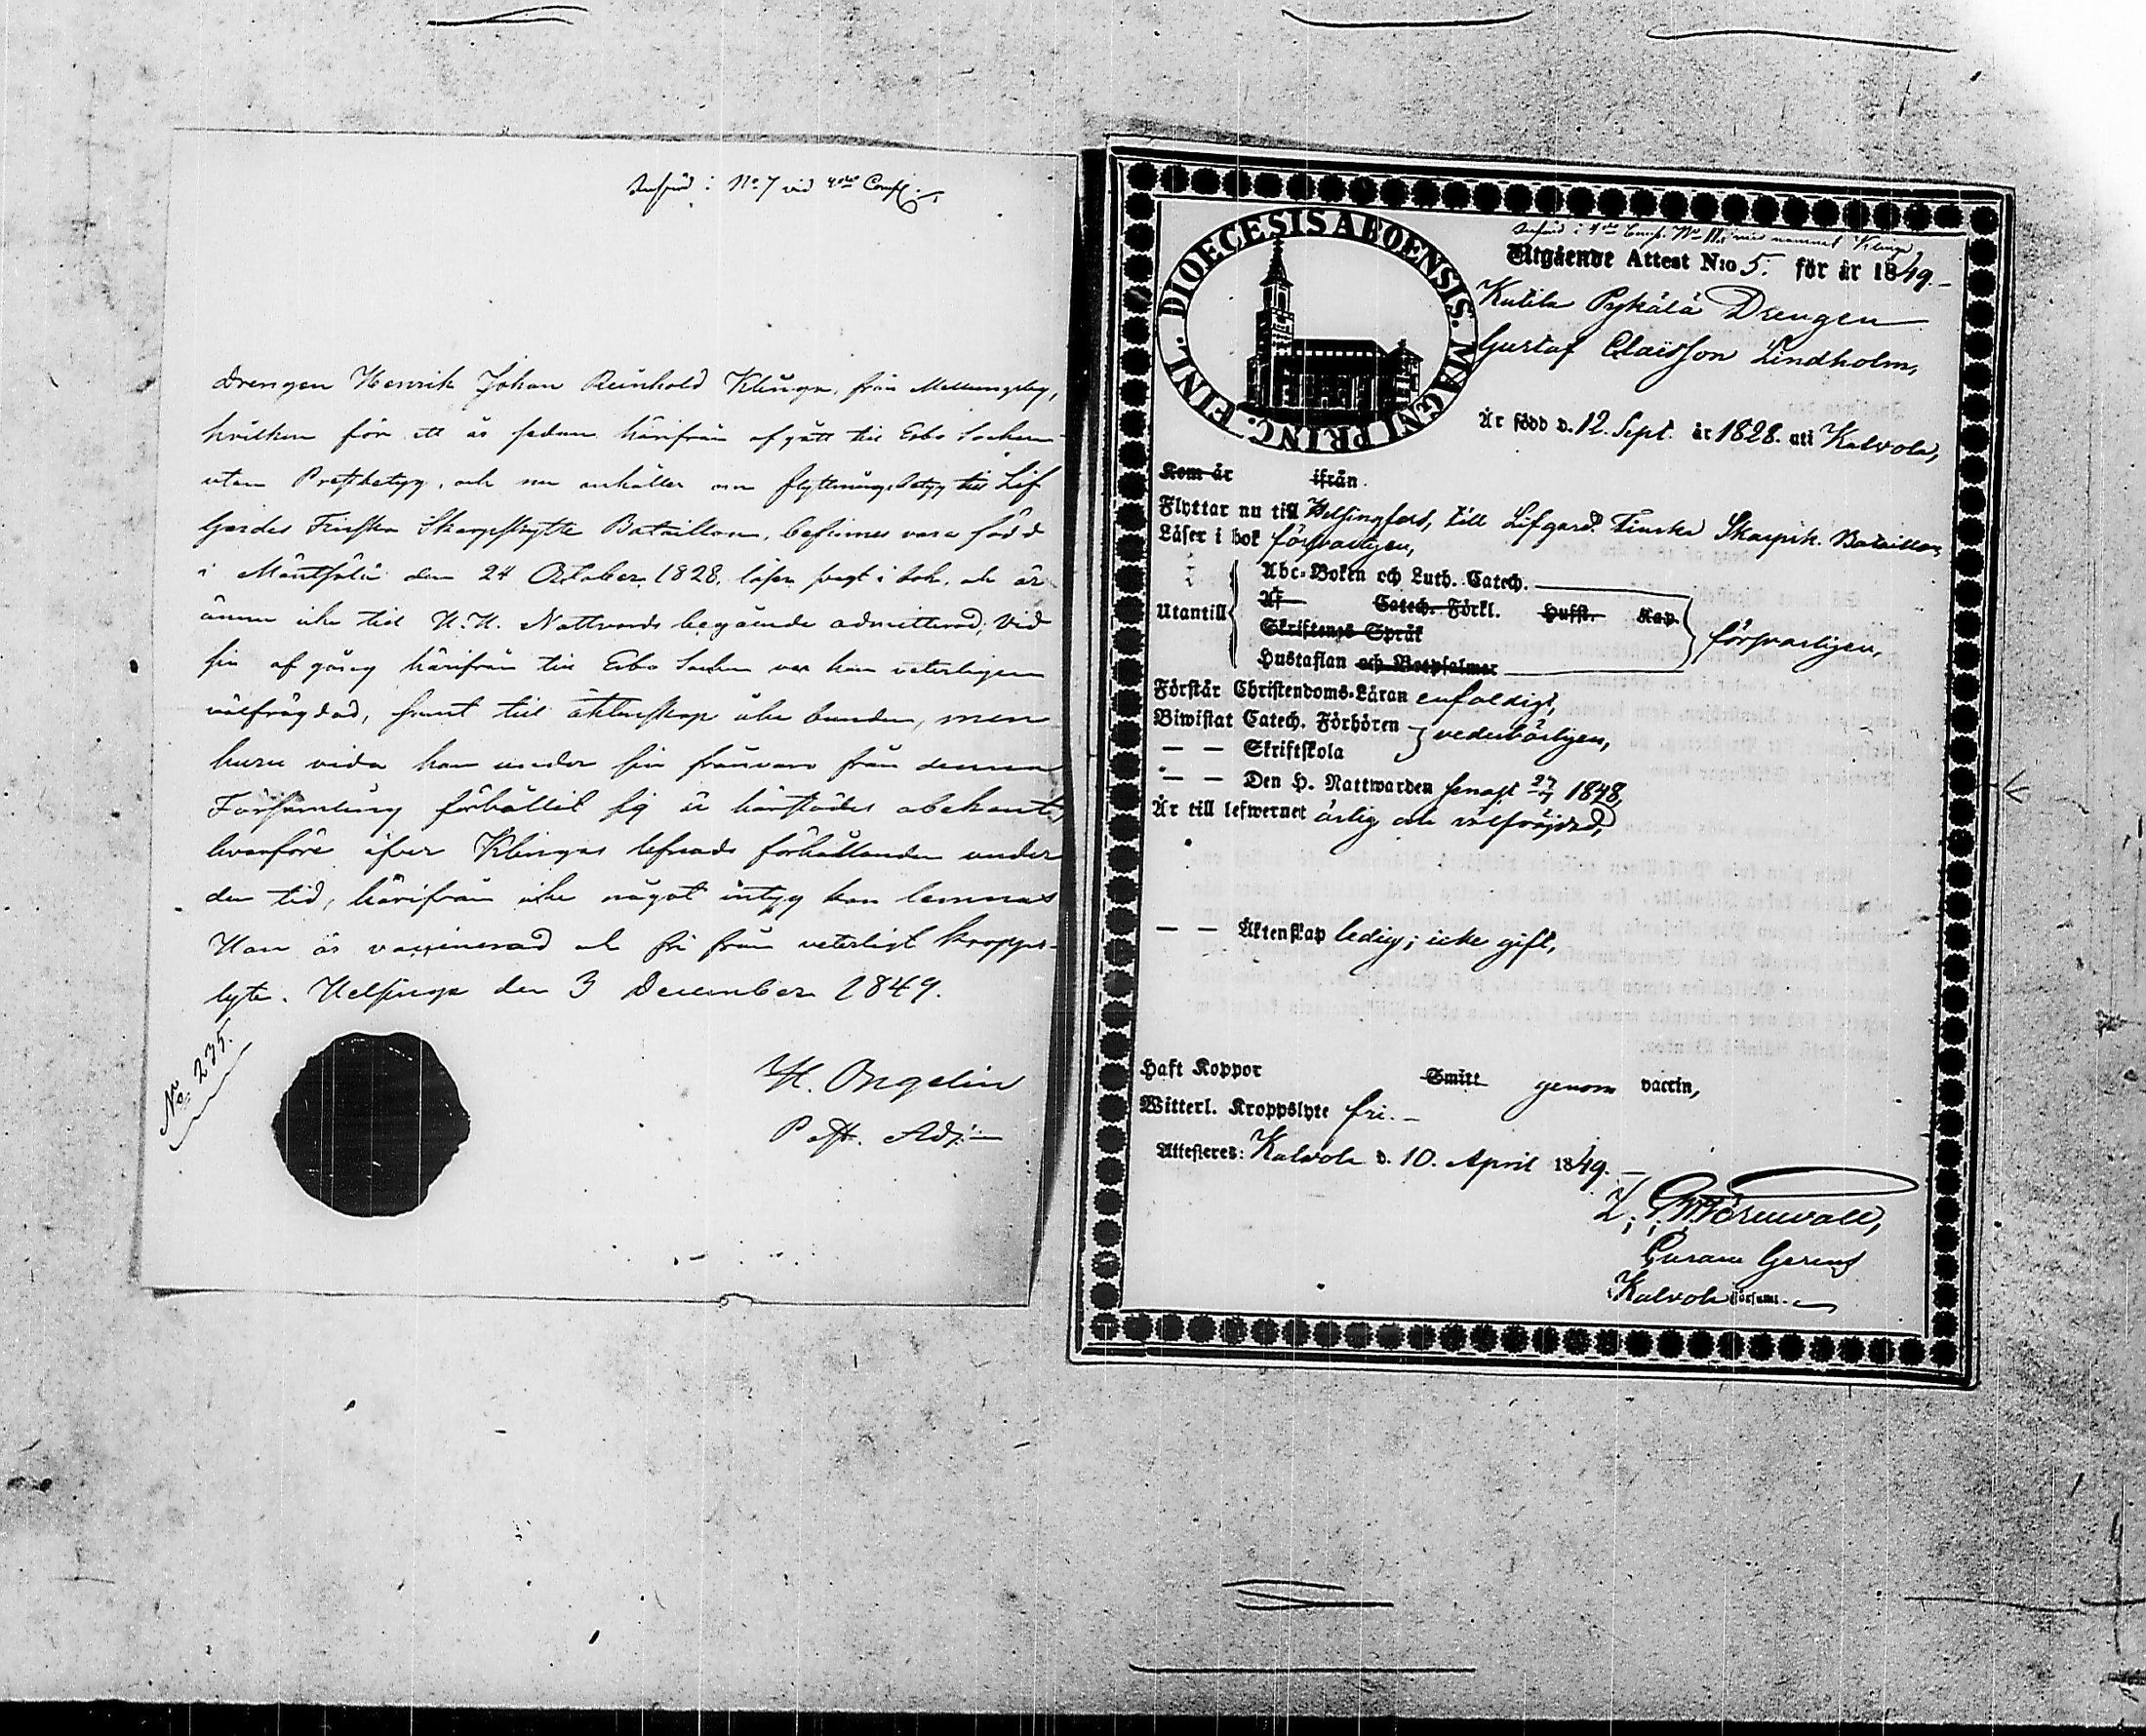 Införd i No 7 vid 4de Comp.
Drengen Henrik Johan Reinhold Klinga, från Mellungsby,
hvilken för ett år sedan härifrån afgått till Esbo Socken
utan Prestbetyg, och nu anhåller om flyttningsbetyg till Lif
Gardes Finska Skarpskytte Bataillon, befinnes vara född
i Mäntsälä den 24 October 1828, läser svagt i bok, och är
ännu icke till H. H. Nattvards begående admitterad; Vid
sin afgång härifrån till Esbo Socken var han veterligen
välfrägdad, samt till äktenskap icke bunden, men
huru vida han under sin frånvaro från denna
Församling förhållit sig är härstädes obekant,
hvarföre öfver Klingas lefnads förhållanden under
den tid, härifrån icke något intyg kan lemnas
Han är vaccinerad och fri från veterligt kropps-
lyte. Helsinge den 3 December 1849.
No 235.
Past. Adj.
DIOECESIS ABOENSIS. MAGNI PRINC. FINL.
Införd i 4de Comp. No 11 med namnet Klinga
Utgående Attest N:o 5. för år 1849.
Kutila Pykälä Drengen
Gustaf Claësson Lindholm,
Är född d. 12. Sept. år 1828. uti Kalvola,
Kom år ifrån
Flyttar nu till Helsingfors, till Lifgard. Finska Skarpsk. Bataillon,
Läser i bok försvarligen,
Abc-Boken och Luth. Catech.
Af Catech. Förkl. Husst. Kap.
Utantill Skriftenes Språk försvarligen,
Hustaflan och Botpsalmer
Förstår Christendoms-Läran enfaldigt,
Biwistat Catech. Förhören vederbörligen,
— — Skriftskola
— — Den H. Nattwarden senast 27/7 1848,
Är till lefwernet ärlig och välfrejdad,
— — Äktenskap ledig; icke gift,
Haft Koppor Smitt genom vaccin,
Witterl. Kroppslyte fri.
Attesteras: Kalvola d. 10. April 1849.
Curam Gerens
i Kalvola Församl.